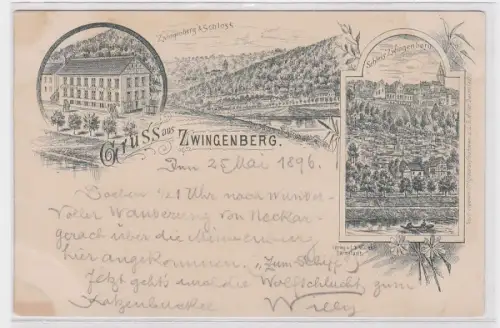 Zwingenberg & Schloss
Schloss Zwingenberg
Gruss aus ZWINGENBERG.
Den 25 Mai 1896.
Soeben 1/21 Uhr nach wunder-
voller Wanderung von Neckar-
gerach über die
hier angekommen.
Jetzt geht's durch die Wolfschlucht zum
Katzenbuckel
Willy